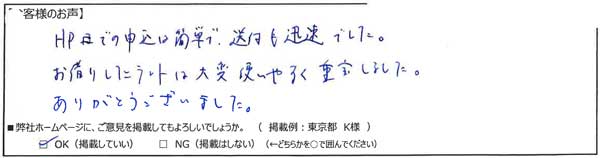 客様のお声】
HPからの申込は簡単で、送付も迅速でした。
お借りしたテントは大変使いやすく重宝しました。
ありがとうございました。
■弊社ホームページに、ご意見を掲載してもよろしいでしょうか。（掲載例：東京都 K様 ）
☑ OK（掲載していい） □ NG（掲載はしない）（←どちらかを○で囲んでください）